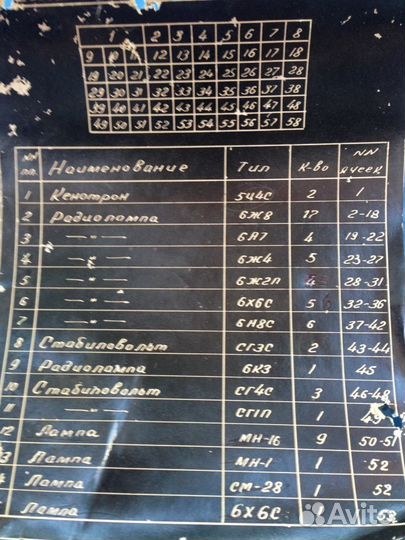 1 2 3 4 5 6 7 8
9 10 11 12 13 14 15 16 17 18
19 20 21 22 23 24 25 26 27 28
29 30 31 32 33 34 35 36 37 38
39 40 41 42 43 44 45 46 47 48
49 50 51 52 53 54 55 56 57 58
NN пп. Наименование Тип К-во NN ячеек
1 Кенотрон 5Ц4С 2 1
2 Радиолампа 6Ж8 17 2-18
3 — " — 6А7 4 19-22
4 — " — 6Ж4 5 23-27
5 — " — 6Ж2П 4 28-31
6 — " — 6Х6С 5 32-36
7 — " — 6Н8С 6 37-42
8 Стабиловольт СГ3С 2 43-44
9 Радиолампа 6К3 1 45
10 Стабиловольт СГ4С 3 46-48
11 — " — СГ1П 1 49
12 Лампа МН-16 9 50-51
3 Лампа МН-1 1 52
4 Лампа СМ-28 1 52
Лампа 6Х6С 58
Avito